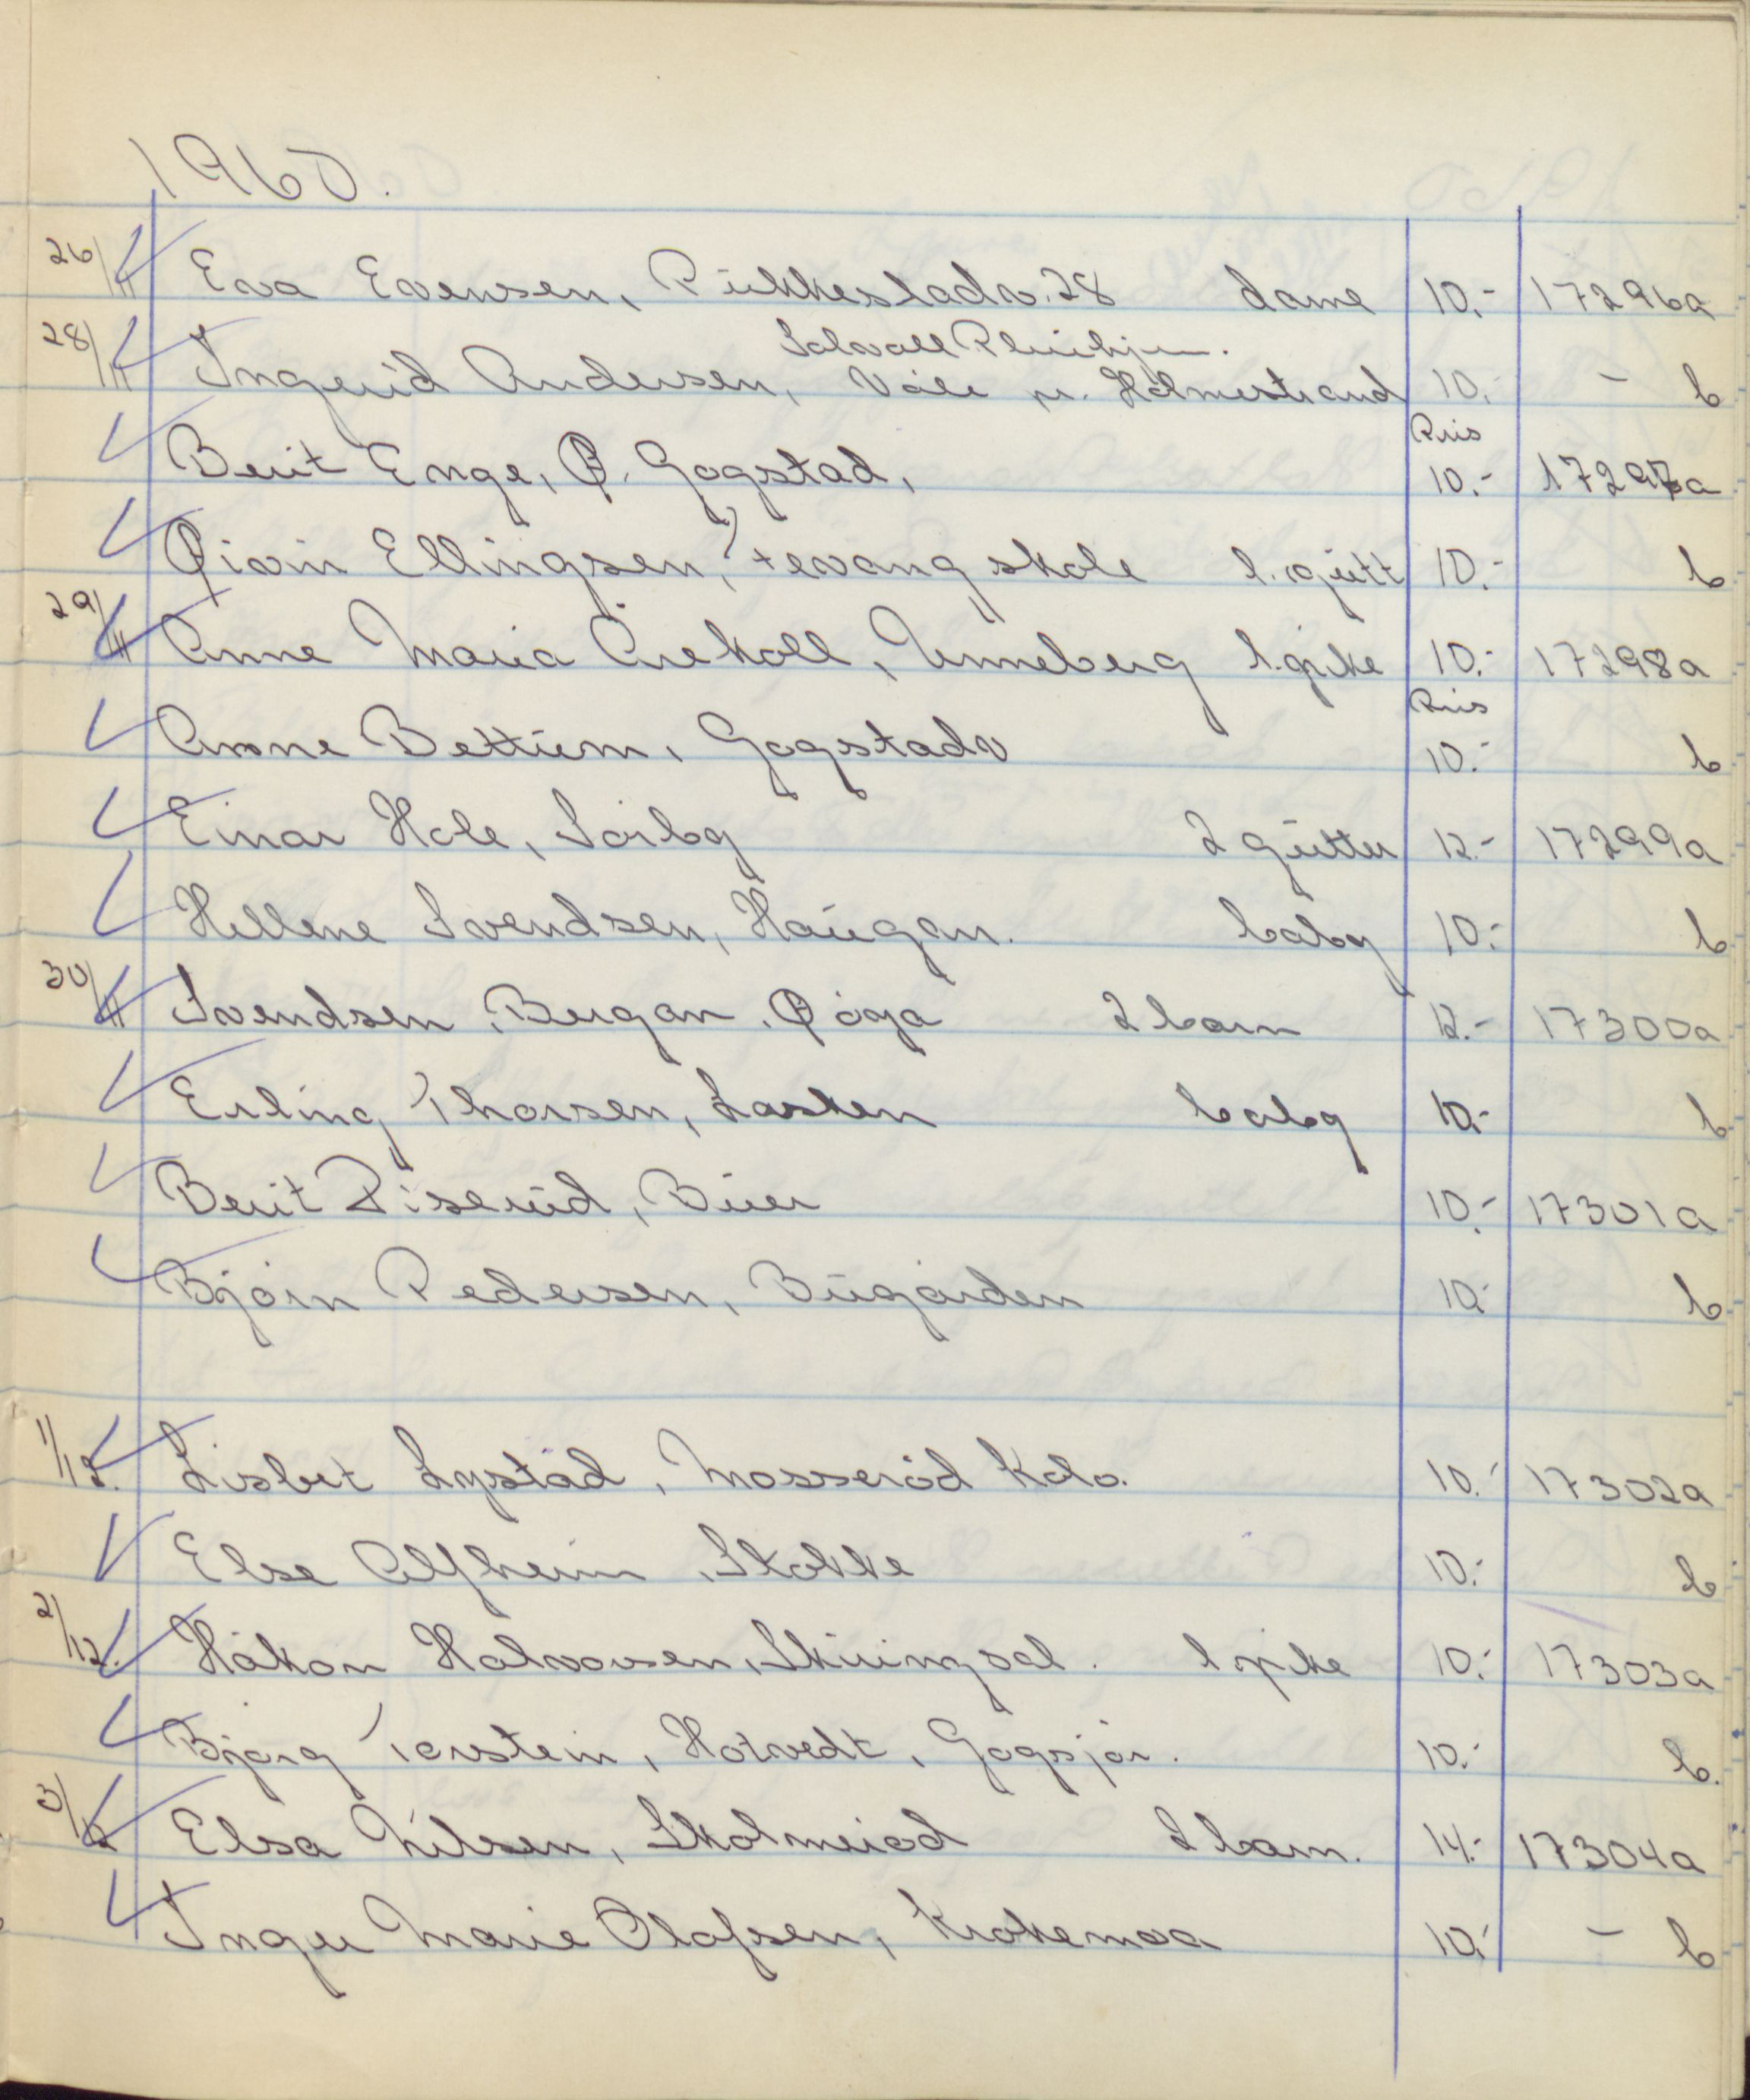 1960.
26/11 Eva Evensen, Pukkestadv. 28 dame 10.- 17296a
Solvall Pleiehjem.
28/11 Ingerid Andersen, Våle pr. Holmestrand 10.- - b
Pris
Berit Enge, Ø. Gogstad, 10.- 17297a
Øivin Ellingsen, Fevang skole l. gutt 10.- b
29/11 Anne Maria Årekoll, Unneberg l. pike 10.- 17298a
Pris
Anne Bettum, Gogstadv 10.- b
Einar Hole, Sørby 2 gutter 12.- 17299a
Hellene Svendsen, Haugan. baby 10.- b
30/11 Svendsen, Bergan, Øøya 2 barn 12.- 17300a
Erling Thorsen, Lasken baby 10.- b
Berit Piserud, Buer 10.- 17301a
Bjørn Pedersen, Bugården 10.- b
1/12. Lisbet Lystad, Mosserød Kolo. 10.- 17302a
Else Alfheim, Stokke 10.- b
2/12. Håkon Halvorsen, Skiringsal. l pike 10.- 17303a
Bjørg Torstein, Hotvedt, Gogsjør. 10.- b.
3/12 Elsa Nilsen, Skolmerød 2 barn. 14.- 17304a
Inger Marie Olafsen, Krokemoa 10.- - b